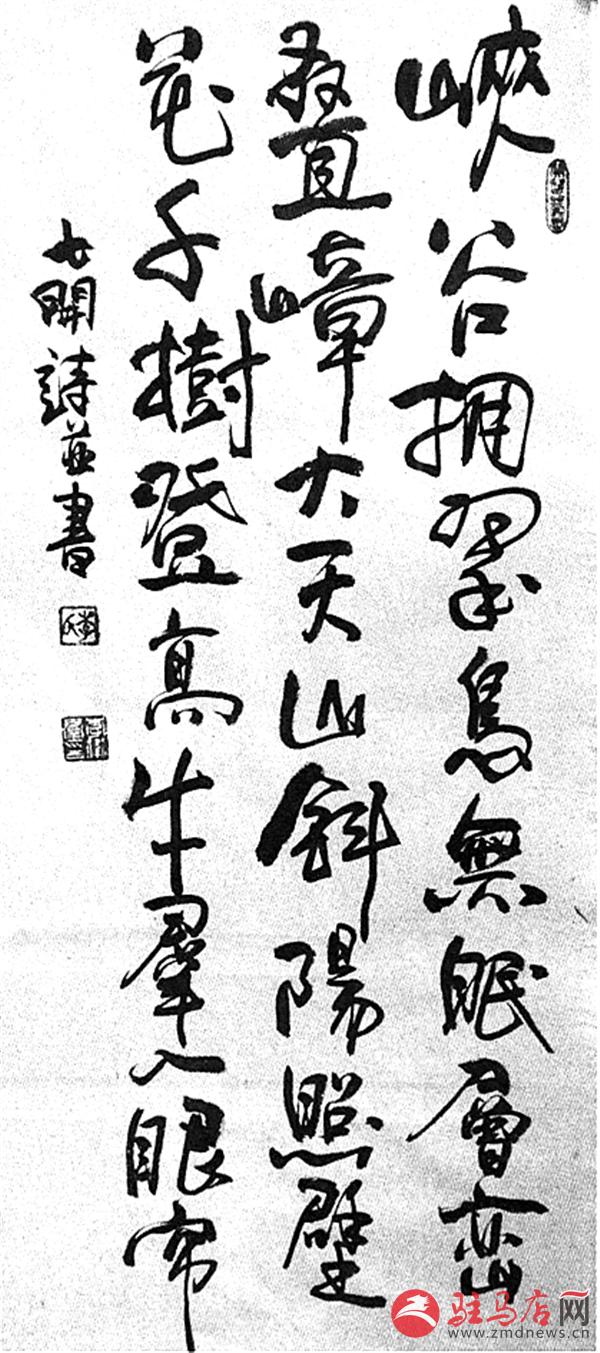 峽谷拥翠鳥無眠層峦
叠嶂大天山斜陽照壁
花千樹登高牛羣入眼帘
開詩並書
驻马店网
www.zmdnews.cn